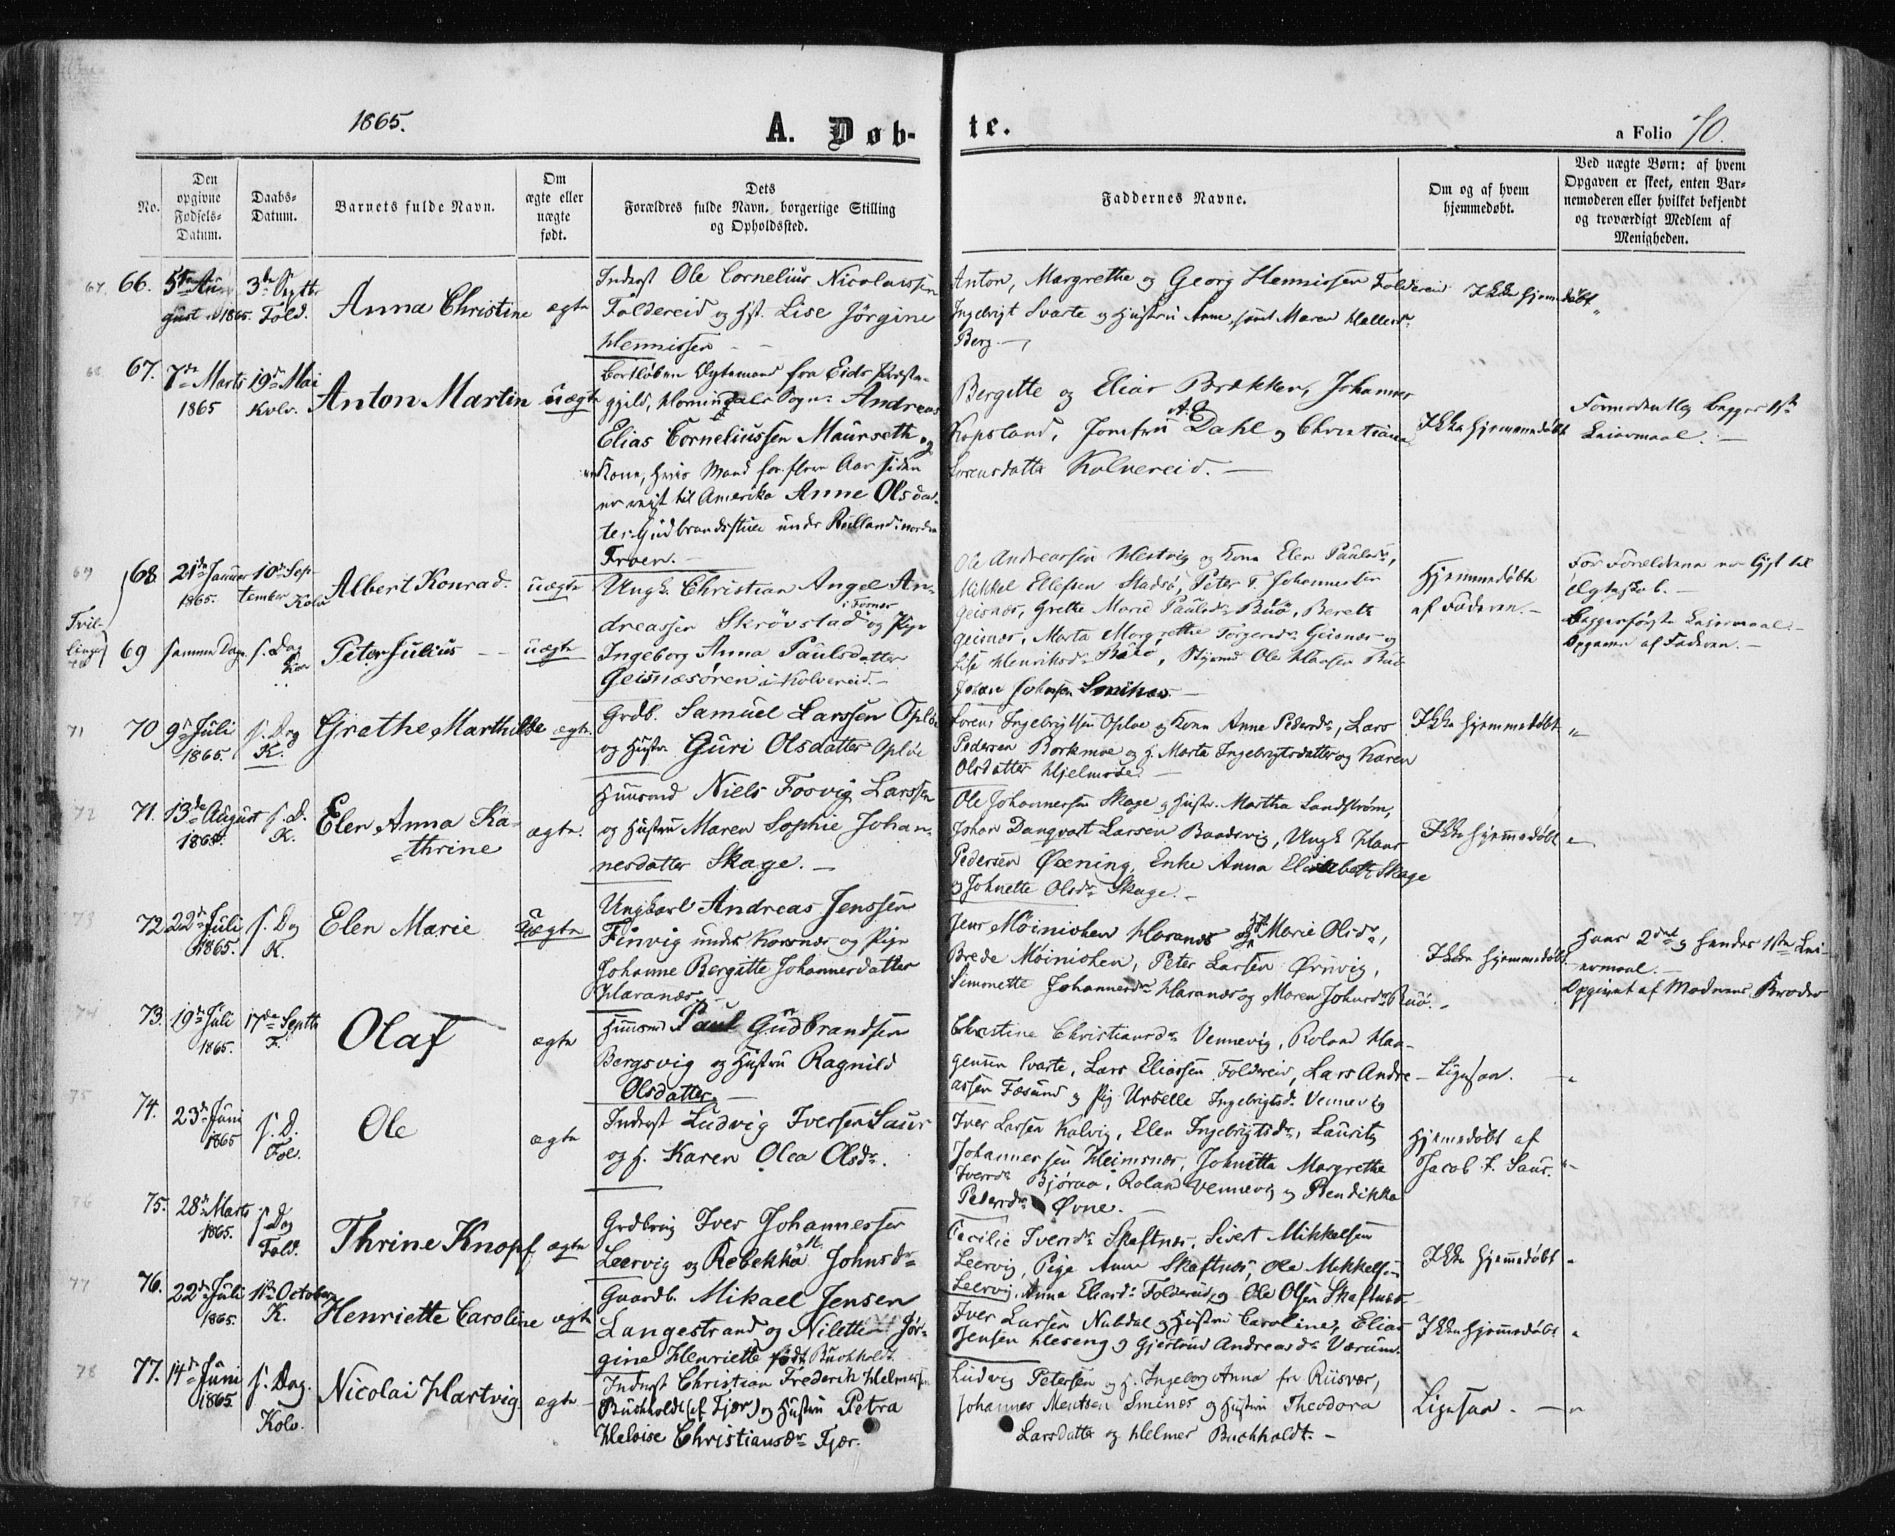 1865.
A. Døb-
te.
a Folio 70.
No.
Den opgivne Fødsels-Datum.
Daabs-Datum.
Barnets fulde Navn.
Om ægte eller uægte født.
Dets Forældres fulde Navn, borgerlige Stilling og Opholdssted.
Faddernes Navne.
Om og af hvem hjemmedøbt.
Ved uægte Børn: af hvem Opgaven er skeet, enten Barnemoderen eller hvilket bekjendt og troværdigt Medlem af Menigheden.
67. 66. 5te August 1865. 3de Septbr Fold. Anna Christine ægte
Inderst Ole Cornelius Nicolaissen
Foldereid og Hst. Lise Jørgine
Hennissen
Anton, Margrethe og Georg Hennissen Foldereid
Ingebrigt Svarte og Hustru Anne, samt Maren Hallersdr
Berg.
Ikke hjemmedøbt
68 67. 7de Marts 1865 19de Mai Kolv. Anton Martin uægte
Bortløben Ægtemand fra Eids Præste-
gjeld, Hornindals Sogn: Andreas
Elias Corneliussen Maurseth og
Kone, hvis Mand for flere Aar siden
er reist til Amerika Anne Olsdat-
ter Gudbrandsstuen under
Troen.
Bergitte og Elias Brækken, Johannes
Kopsland, Jomfru A. C. Dahl og Christiane
Lorensdatter Kolvereid.
Ikke hjemmedøbt
Formodentlig begges 1ste
Leiermaal.
69 68 21de Januar 1865. 10de September Kolv Albert Konrad uægte
Tvillinger 70
69 samme Dag s. Dag Kolv Peter Julius uægte
Ungk. Christian Angel An-
dreassen Skrøvstad i Fosnes og Pige
Ingeborg Anna Paulsdatter
Geisnæsøren i Kolvereid.
Ole Andreassen Hestvig og Kone Elen Paulsdr,
Mikkel Ellefsen Stadsø, Peter T. Johannessen
Geisnæs, Grethe Marie Paulsdr Buø, Berett
Geisnæs, Marta Margrethe Torgersdr Geisnæs og
Lise Henriksdr, Styrmd Ole Hansen
Johan Johnsen
Hjemmedøbte
af Faderen.
For Forældrene er lyst til
Ægteskab.
Begges første Leiermaal.
Opgivet af Faderen.
71 70 9de Juli 1865. s. Dag K. Grethe Marthilde ægte
Grdb. Samuel Larssen Opløe
og Hustru Guri Olsdatter Opløe
Lorens Ingebrigtsen Opløe og Kone Anne Pedersdr, Lars
Pedersen Borkmoe og H. Marta Ingebrigtsdatter og Karen
Olsdatter Hjelmsøe
Ikke hjemmedøbt "
72 71. 13de August 1865. s. D. K. Elen Anna Ka-
thrine ægte.
Huusmd Niels Fosvig Larssen
og Hustru Maren Sophie Johan-
nesdatter Skage.
Ole Johannessen Skage og Hustr. Martha Landstrøm,
Johan Danqvart Larsen Baadsvig, Ungk Hans
Pedersen Øxning, Enke Anna Elisabeth Skage
og Johnette Olsdr Skage.
Ikke hjemmedøbt "
73 72 22de Juli 1865. s. Dag K. Elen Marie uægte
Ungkarl Andreas Jenssen
Finvig under Korsnæs og Pige
Johanne Bergitte Johannesdatter
Haranæs.
Jens Møinichen Haranæs og H. Marie Olsdr,
Brede Møinichen, Peter Larsen Ørnvig,
Simonette Johannesdr Haranæs og Maren Johnsdr
Ikke hjemmedøbt
Hans 2det og hendes 1ste Lei-
ermaal.
Opgivet af Moderens Broder
74 73. 19de Juli 1865. 17de Septbr F. Olaf ægte
Huusmd Paul Gudbrandsen
Bergsvig og Hustru Ragnild
Olsdatter
Christine Christiansdr Vennevig, Roland Haa-
gensen Svarte, Lars Eliassen Foldereid, Lars Andre-
assen Fæsund og Pig Urselle Ingebrigtsd. Vennevig
Ligesaa. "
75 74. 23de Juni 1865 s. D. Fol. Ole ægte
Inderst Ludvig Iversen Saur
og H. Karen Olea Olsdr.
Iver Larsen Kalvig, Elen Ingebrigtsdr, Lauritz
Johannessen Heimsnæs, Johnetta Margrethe
Iversdr Bjøraa, Roland Vennevig og Bendikka
Pedersdr Øvne.
Hjemmedøbt af
Jacob I. Saur. "
76 75. 28de Marts 1865. s. Dag Fold. Thrine Knopf ægte
Grdbrug Iver Johannessen
Leervig og Rebekka M. Johnsdr
Cecilie Iversdr Skaftnæs, Sivert Mikkelsen
Leervig, Pige Anne Skaftnæs, Ole Mikkelsen
Leervig, Anna Eliasd. Foldereid, og Ole Olsen Skaftnæs
Ikke hjemmedøbt "
77 76. 22de Juli 1865. 1ste October K. Henriette Caroline ægte
Gaardb. Mikael Jensen
Langestrand og Nilette Jør-
gine Henriette født Buchholdt.
Iver Larsen Nubdal og Hustru Caroline, Elias
Jensen Heseng og Gjertrud Andreasdr Værum.
Ikke hjemmedøbt "
78 77. 14de Juni 1865. s. Dag. Kolv. Nicolai Hartvig ægte
Inderst Christian Frederik Helmersen
Buchholdt (af Fjær) og Hustru Petra
Heloise Christiansdr Fjær.
Ludvig Petersen og H. Ingeborg Anna fra Riisvær,
Johannes Mentsen Smines og Hustru Theodora
Larsdatter og Helmer Buchholdt.
Ligesaa. "